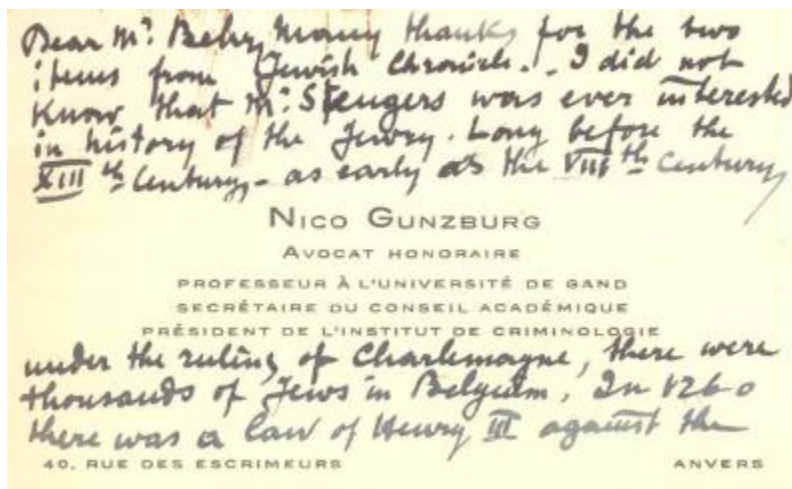 Dear Mr. Behr, Many thanks for the two
items from Jewish Chronicle. I did not
know that Mr. Stengers was ever interested
in history of the Jewry. Long before the
XIII th Century, - as early as the VIII th Century,
NICO GUNZBURG
AVOCAT HONORAIRE
PROFESSEUR À L'UNIVERSITÉ DE GAND
SECRÉTAIRE DU CONSEIL ACADÉMIQUE
PRÉSIDENT DE L'INSTITUT DE CRIMINOLOGIE
under the ruling of Charlemagne, there were
thousands of Jews in Belgium. In 1260
there was a law of Henry III against the
40, RUE DES ESCRIMEURS ANVERS